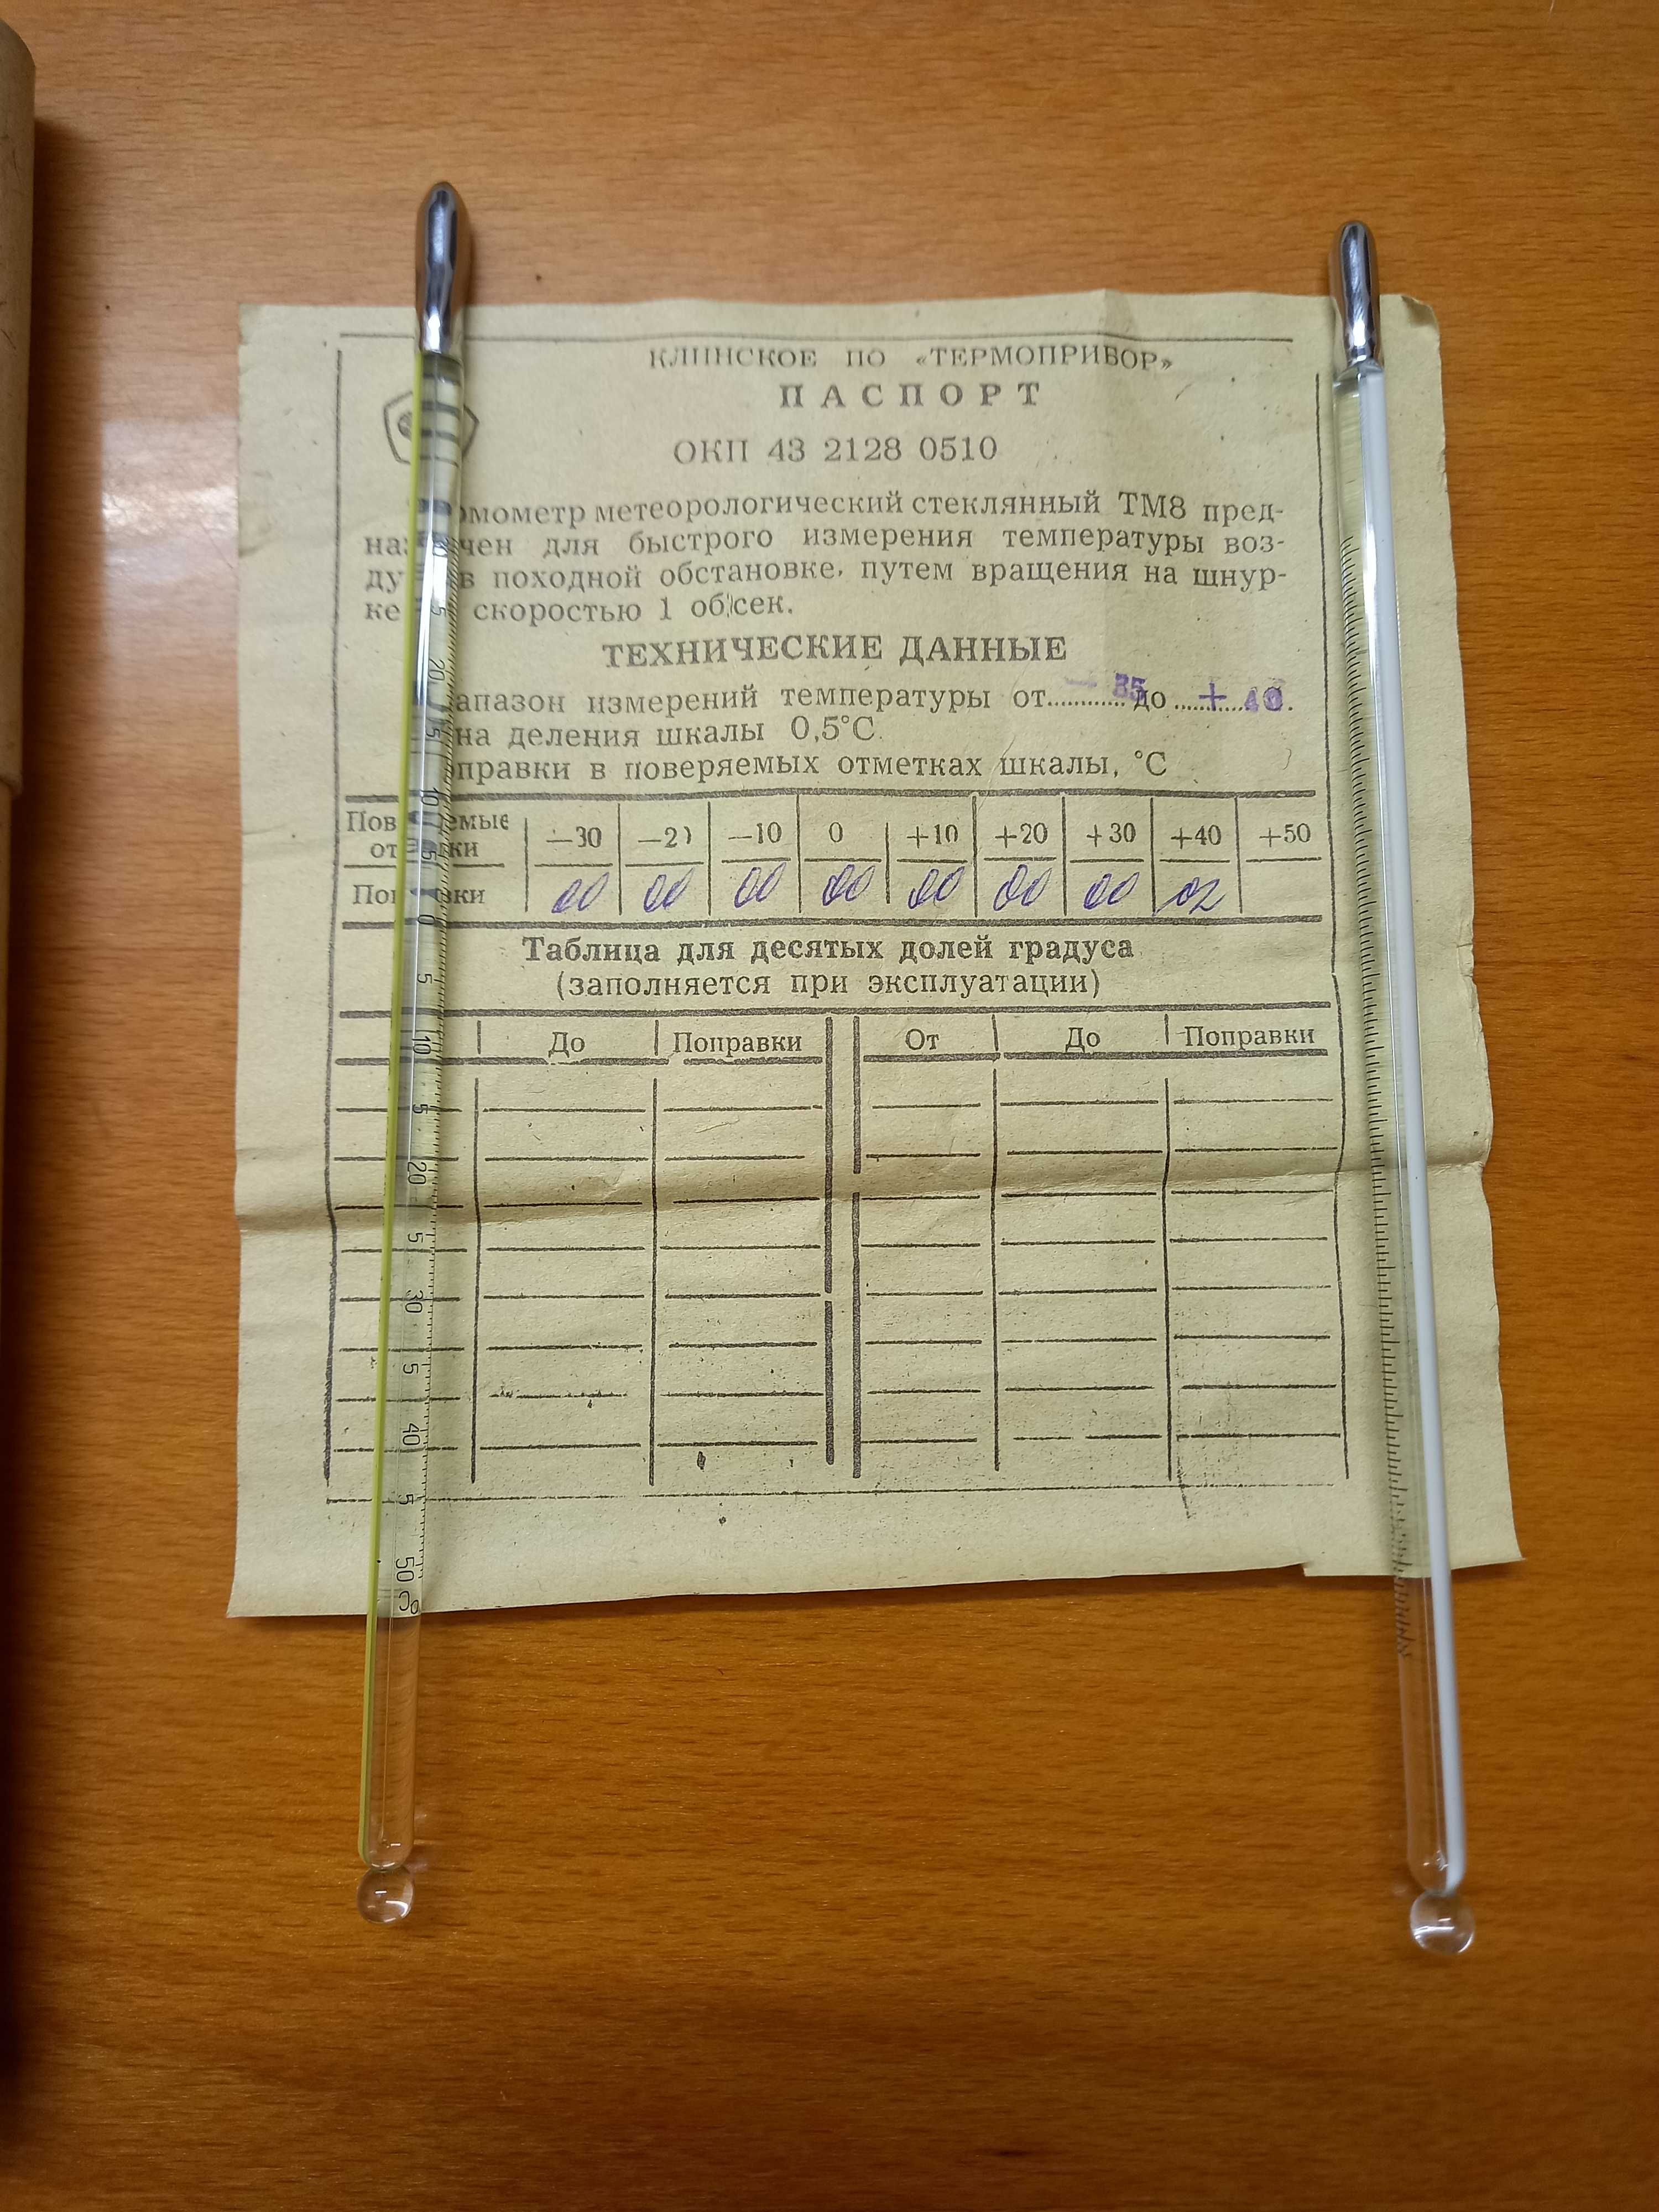 КЛИНСКОЕ ПО «ТЕРМОПРИБОР»
ПАСПОРТ
ОКП 43 2128 0510
омометр метеорологический стеклянный ТМ8 пред-
наз чен для быстрого измерения температуры воз-
ду в походной обстановке, путем вращения на шнур-
ке скоростью 1 об/сек.
ТЕХНИЧЕСКИЕ ДАННЫЕ
апазон измерений температуры от — 35 до + 40.
на деления шкалы 0,5°С.
правки в поверяемых отметках шкалы, °С
Пов емые от ки —30 —20 —10 0 +10 +20 +30 +40 +50
Поп вки 00 00 00 00 00 00 00 02
Таблица для десятых долей градуса
(заполняется при эксплуатации)
До Поправки От До Поправки
5
20
5
10
5
0
5
10
5
20
5
30
5
40
5
50
°C